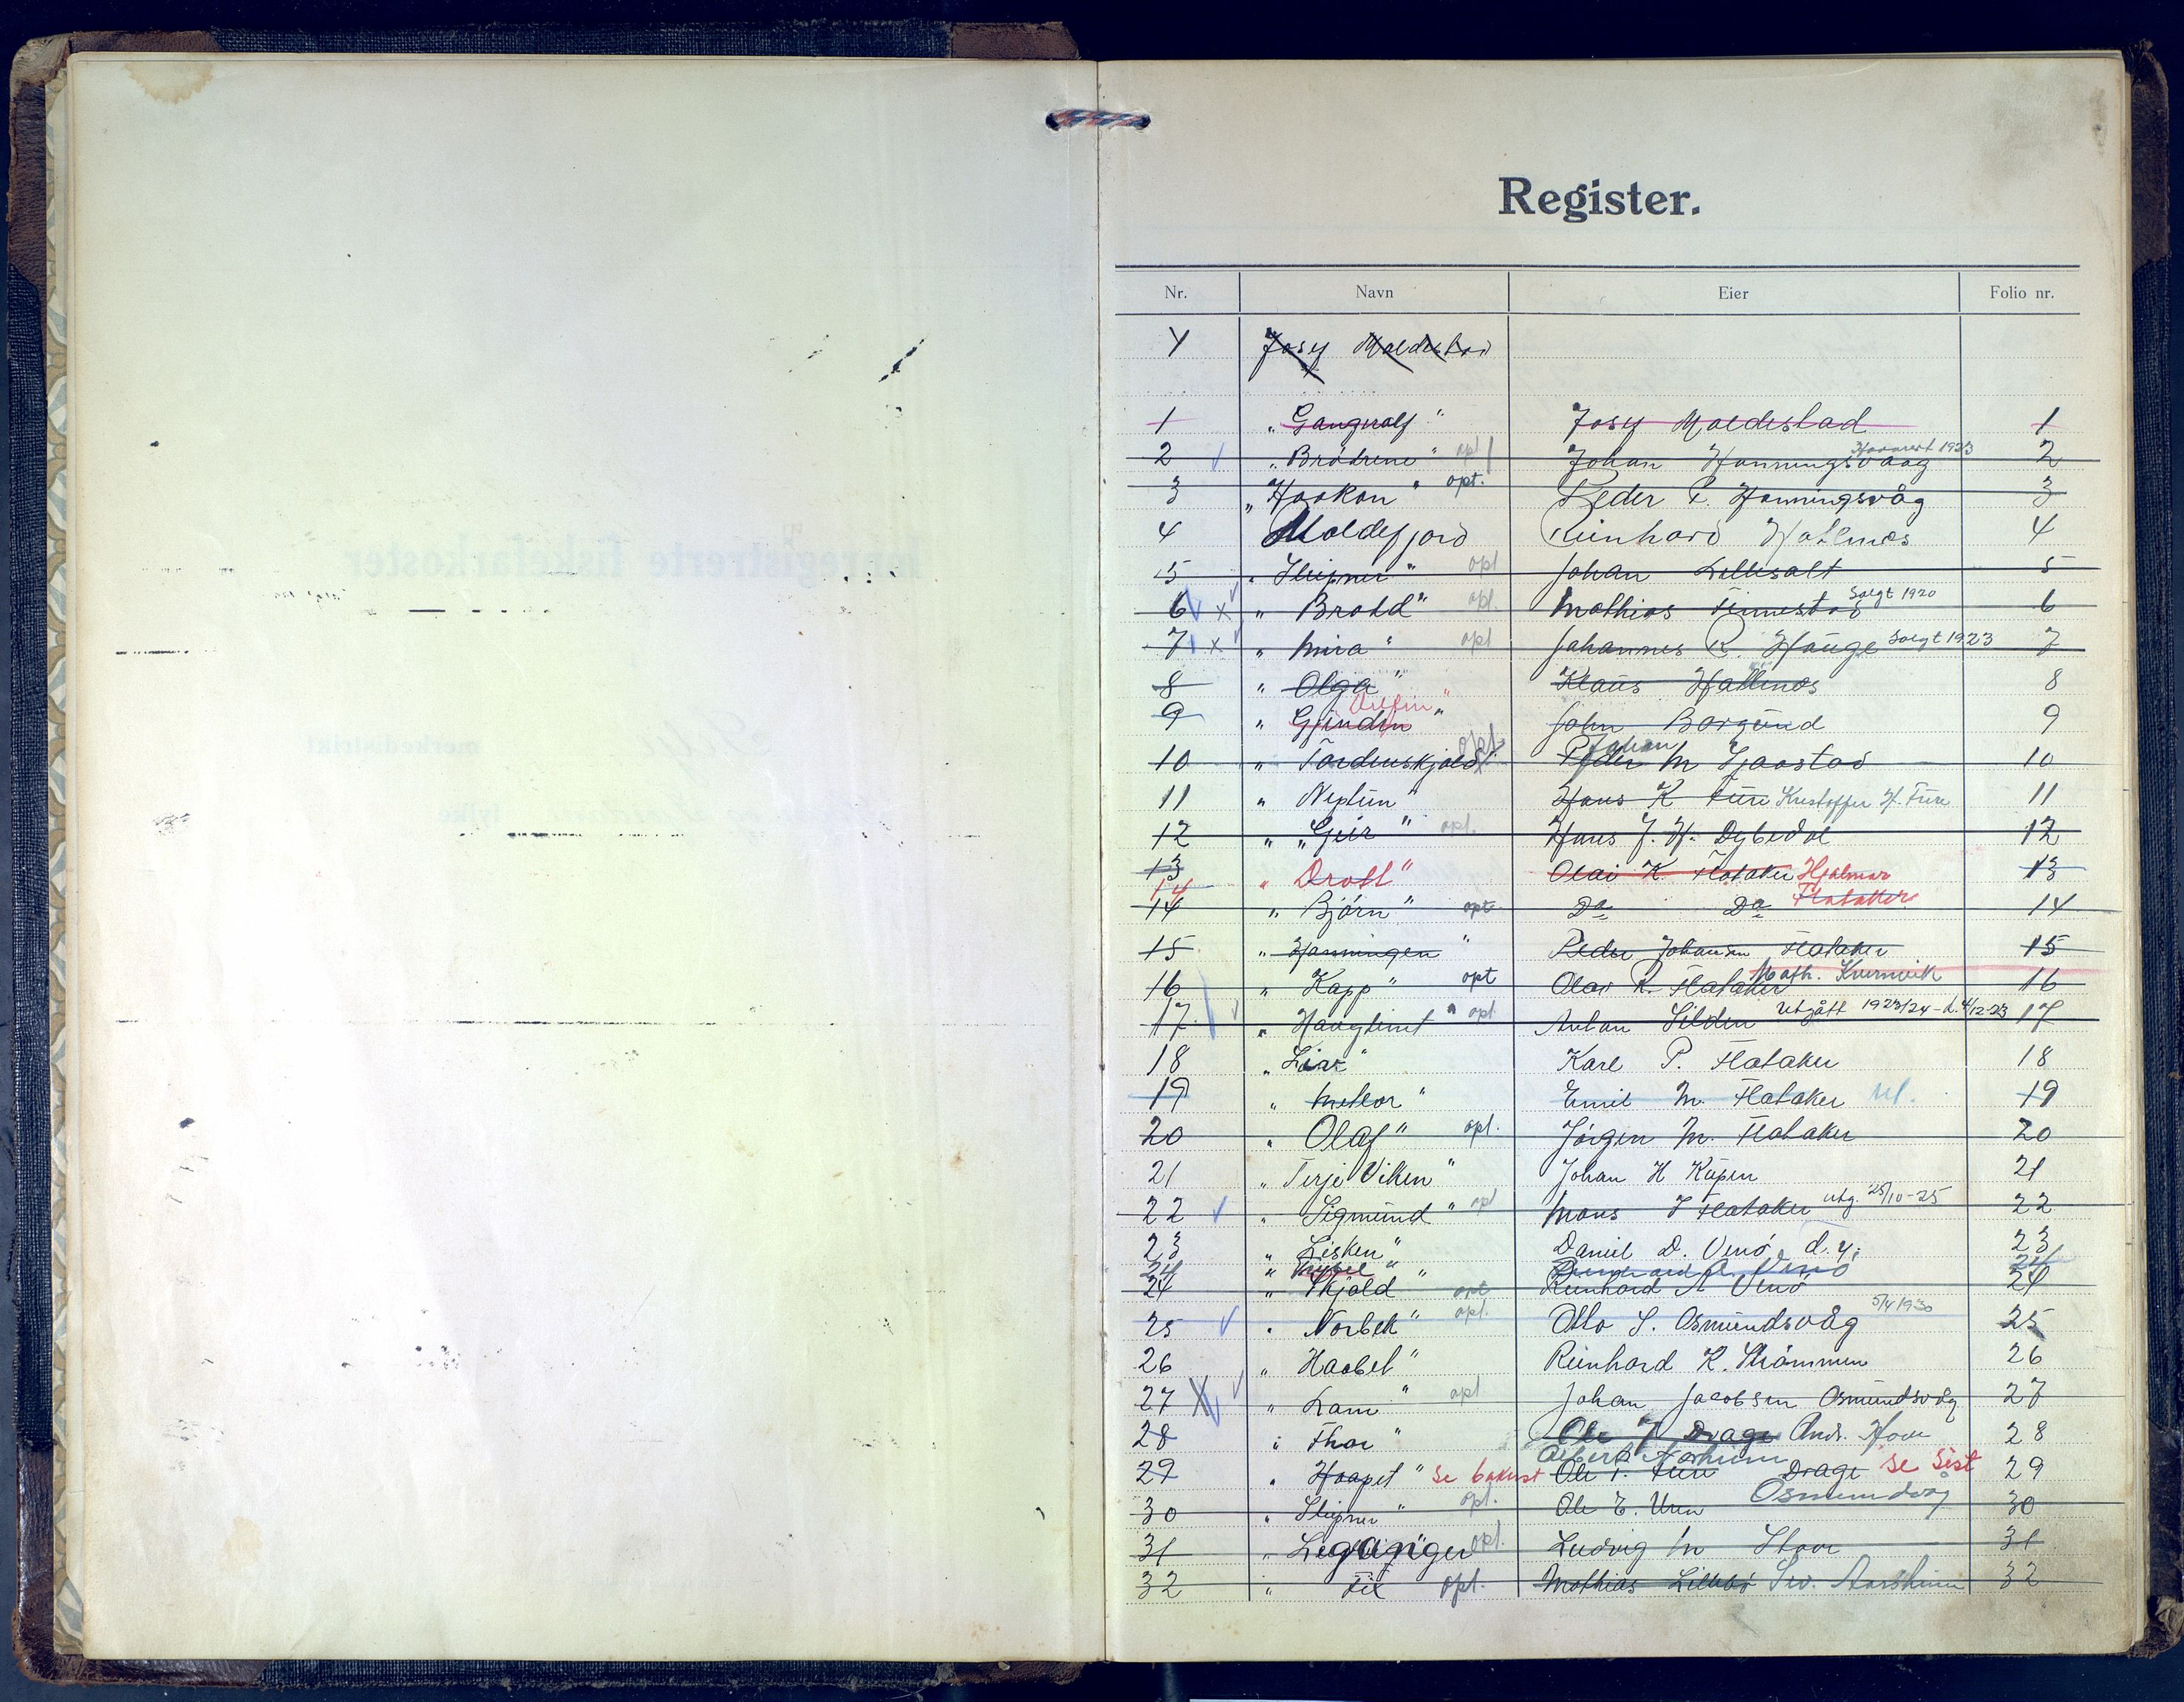 Register.
Nr. Navn Eier Folio nr.
Y Josef Moldestad
1 „Gangrolf" Josef Moldestad 1
2 „Brödrene" opt Johan Honningsvaag Havarert 1923 2
3 „Haakon" opt. Peder P. Honningsvåg 3
4 Moldefjord Reinhard Hatlenes 4
5 „Sleipner" opt Johan Lillesalt 5
6 x „Brodd" opt. Mathias Finnestad Solgt 1920 6
7 x „Mira" opt Johannes R. Hauge Solgt 1923 7
8 „Olga" Klaus Hatlenes 8
9 „Gjendin" Delfin" John Borgund 9
10 „Tordenskjold" opt. Peder Johan M 10
11 „Neptun" Hans K Fure Kristoffer H. Fure 11
12 „Geir" opt. Hans J. H. Dybedal 12
13 „Drott" Olai K Flatøker Hjalmar 13
14
14 „Björn" opt. Do Do Flatøker 14
15 „Hanningen" Peder Johansen Flatøker 15
16 „Kapp" opt Olav R. Flatøker Math. Kvernevik 16
17 „Haugtind" opt. Anton Silden Utgått 1923/24 - d. 4/12-23 17
18 „Liv" Karl P. Flatøker 18
19 „Meteor" Emil M. Flatøker ut. 19
20 „Olaf" opt. Jörgen M. Flatøker 20
21 „Terje Viken" Johan H Kupen 21
22 „Sigmund" opt Mons J Flatøker utg. 25/10-25 22
23 „Lisken" Daniel D. Venö d. y. 23
24 „ " Reinhard A. Venö 24
24 „Skjold" opt Reinhard A Venö 24
25 „Norbek" opt. Otto S. Osmundsvåg 5/4 1930 25
26 „Haabet" Reinhard K. Strömmen 26
27 X „Lam" opt Johan Jacobsen Osmundsvåg 27
28 „Thor" Ole J Drage And. Hove 28
29 „Haapet" Se bakerst Ole P. Fure Albert Aarheim Drage se Sist 29
30 „Sleipner" opt. Ole E. Uren Osmundvåg 30
31 „Leganger" opt. Ludvig M Stave 31
32 „Fix opt. Mathias Lillebö Sev. Aarsheim 32